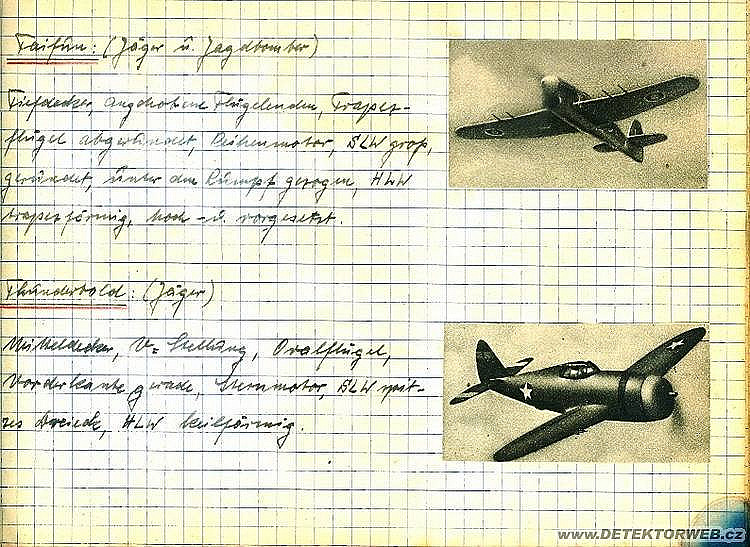 Taifun: (Jäger u. Jagdbomber)
Tiefdecker, angehobene Flügelenden, Trapez-
flügel abgerundet, Reihenmotor, SLW groß,
gerundet, unter den Rumpf gezogen, HLW
trapezförmig, hoch- u. vorgesetzt.
Thunderbold: (Jäger)
Mitteldecker, V=Stellung, Ovalflügel,
Vorderkante gerade, Sternmotor, SLW spit-
zes Dreieck, HLW keilförmig.
WWW.DETEKTORWEB.CZ